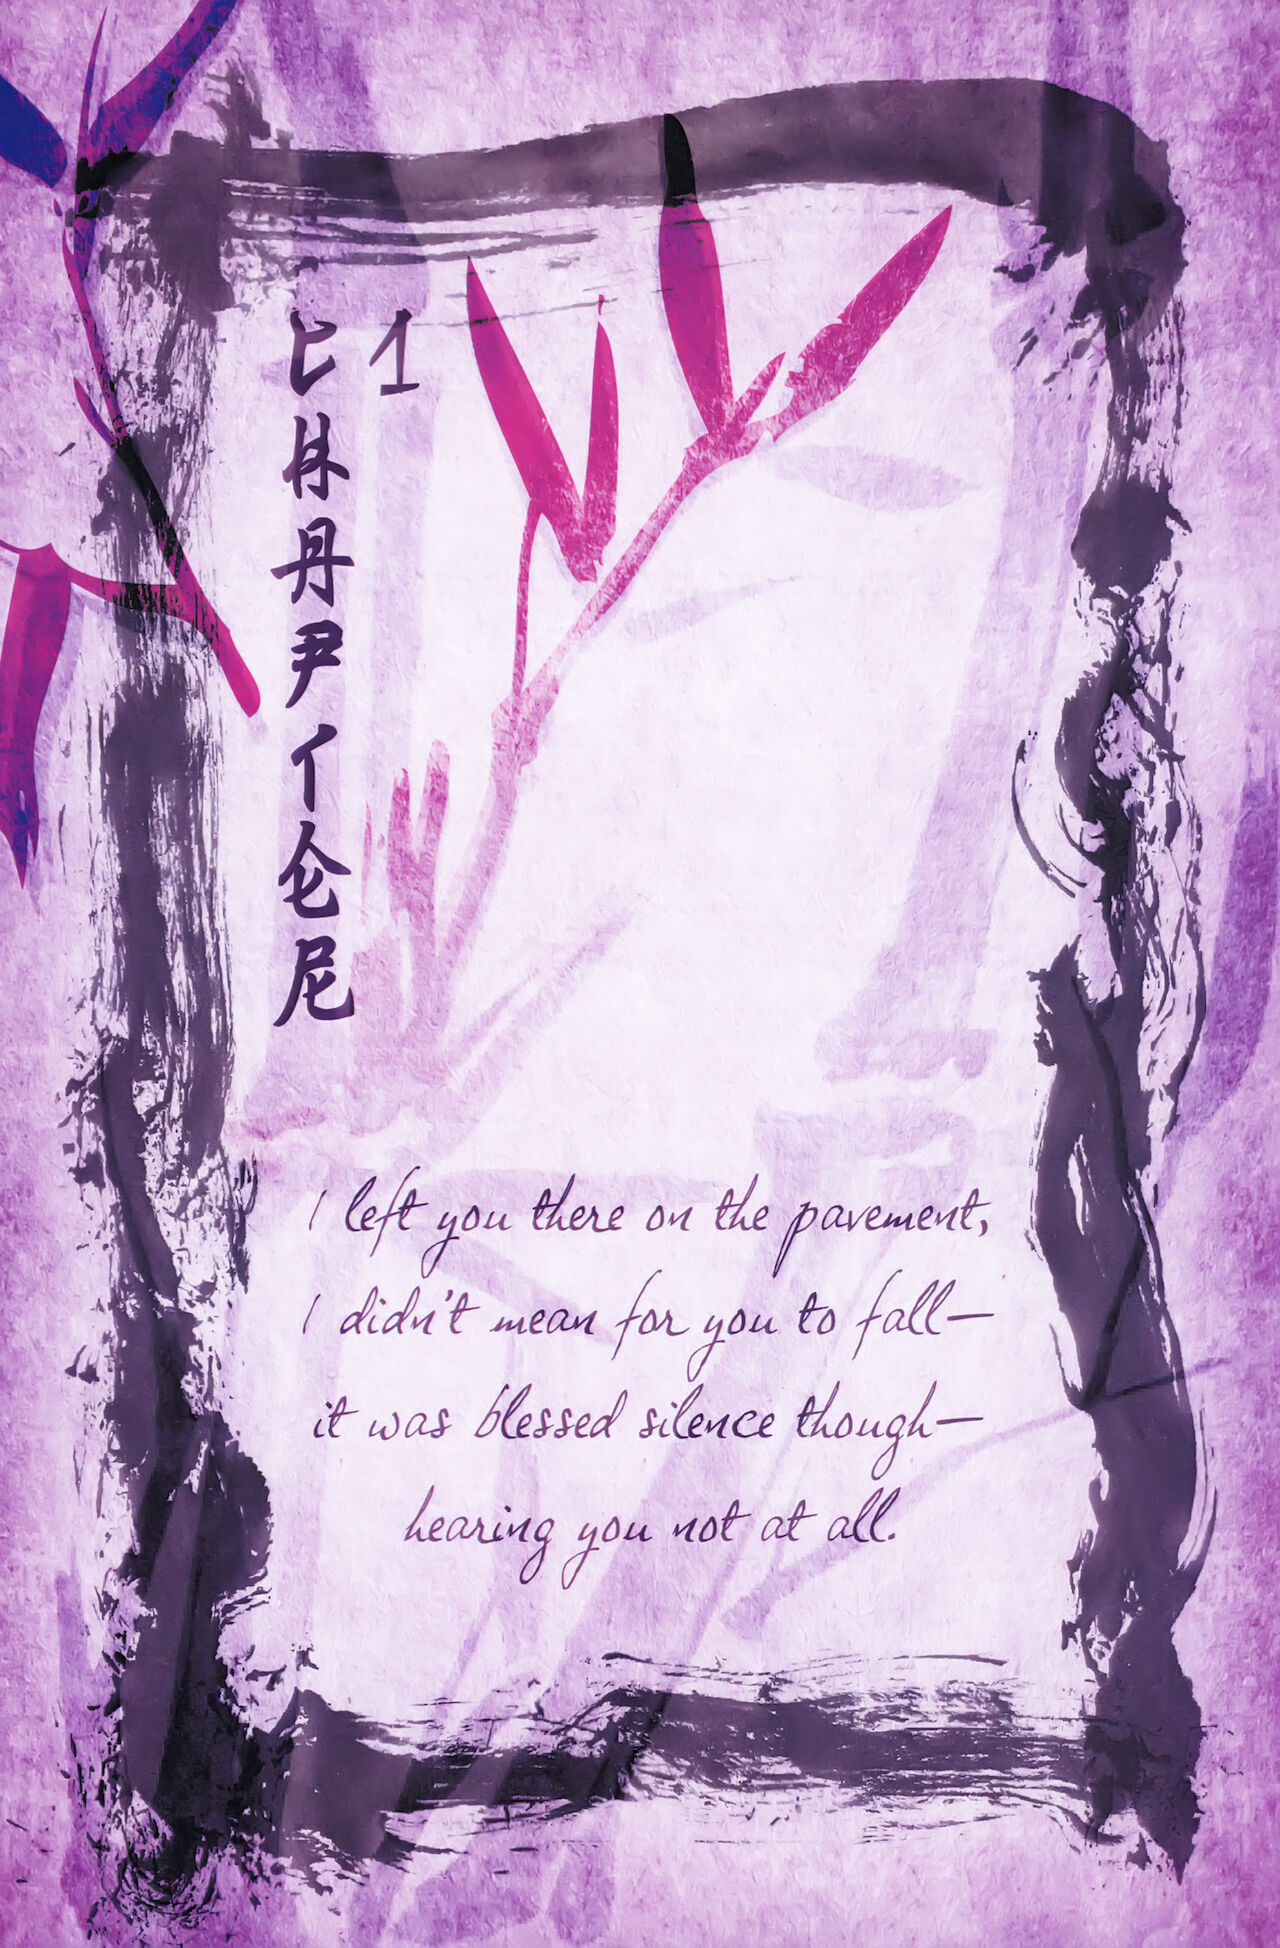 CHAPTER 1
I left you there on the pavement,
I didn't mean for you to fall—
it was blessed silence though—
hearing you not at all.